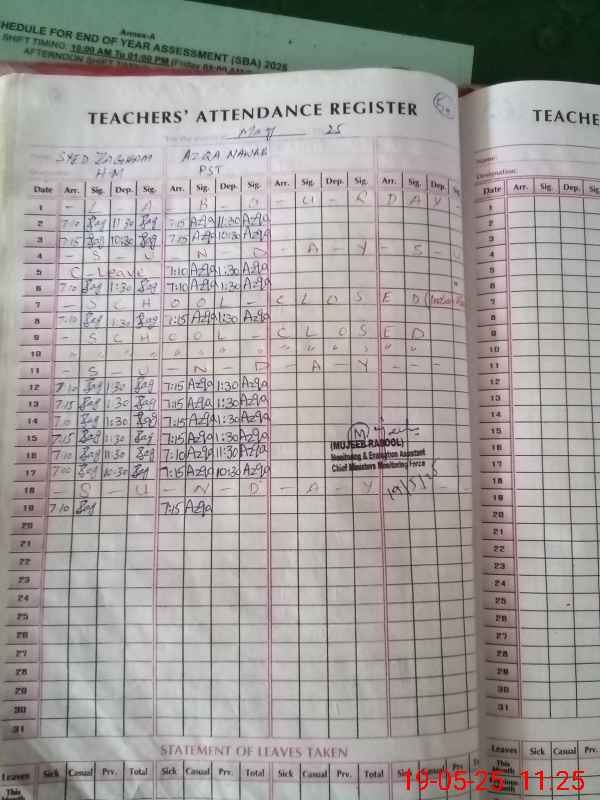 Annex-A
HEDULE FOR END OF YEAR ASSESSMENT (SBA) 2025
SHIFT TIMING: 10:00 AM To 01:00 PM (Friday
AFTERNOON SHIFT
TEACHERS' ATTENDANCE REGISTER
May 25
SYED ZAGHAM AZQA NAWAB
HM PST
Date Arr. Sig. Dep. Sig. Arr. Sig. Dep. Sig. Arr. Sig. Dep. Sig. Arr. Sig. Dep. Sig.
1 - L - A - B - O - U - R DAY -
2 7:10 Zag 11:30 Zag 7:15 Azqa 11:30 Azqa
3 7:15 Zag 10:30 Zag 7:15 Azqa 10:30 Azqa
4 - S - U - N - D - A - Y - S - U
5 C - Leave 7:10 Azqa 1:30 Azqa
6 7:10 Zag 1:30 Zag 7:10 Azqa 1:30 Azqa
7 - SCHOOL - CLOSED
8 7:10 Zag 1:30 Zag 7:15 Azqa 1:30 Azqa
9 - SCHOOL - CLOSED
10 " " " " " " " " " " " "
11 - S - U - N - D - A - Y - - -
12 7:10 Zag 1:30 Zag 7:15 Azqa 1:30 Azqa
13 7:15 Zag 1:30 Zag 7:15 Azqa 1:30 Azqa
14 7:10 Zag 1:30 Zag 7:10 Azqa 1:30 Azqa
15 7:15 Zag 1:30 Zag 7:15 Azqa 1:30 Azqa
16 7:10 Zag 11:30 Zag 7:10 Azqa 11:30 Azqa
17 7:10 Zag 10:30 Zag 7:15 Azqa 10:30 Azqa
18 - S - U - N - D - A - Y - - -
19 7:10 Zag 7:15 Azqa
20
21
22
23
24
25
26
27
28
29
30
31
(MUJEEB RASOOL)
Monitoring & Evaluation Assistant
Chief Ministers Monitoring Force
19/5/25
STATEMENT OF LEAVES TAKEN
Leaves Sick Casual Prv. Total Sick Casual Prv. Total Sick Casual Prv. Total Sick Casual Prv.
This
Month
TEACHE
Name:
Designation:
Date Arr. Sig. Dep. Sig.
1
2
3
4
5
6
7
8
9
10
11
12
13
14
15
16
17
18
19
20
21
22
23
24
25
26
27
28
29
30
31
Leaves Sick Casual Prv.
This
Month
19-05-25 11:25